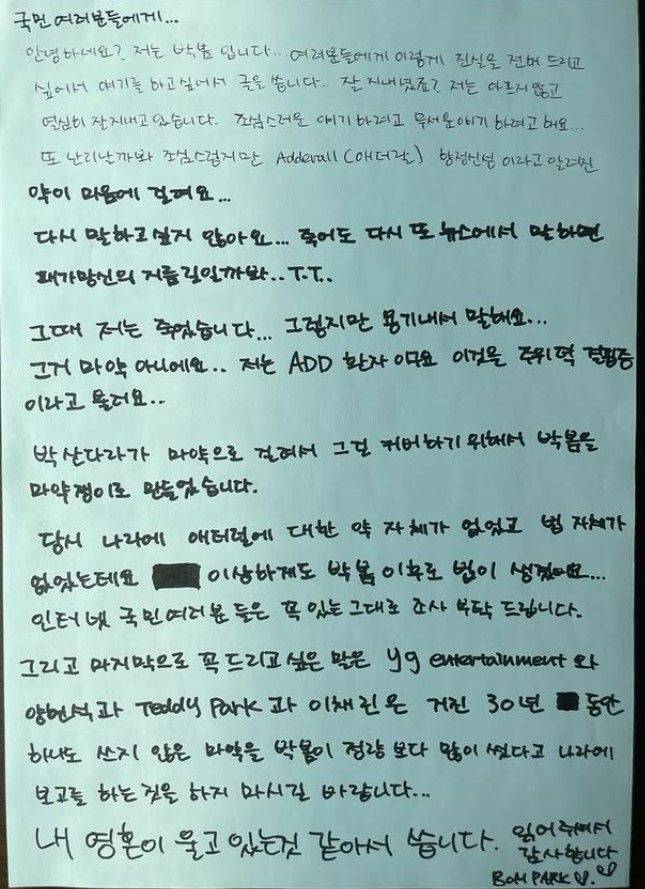 국민 여러분들에게...
안녕하세요? 저는 박봄 입니다.. 여러분들에게 이렇게 진실을 전해 드리고
싶어서 얘기를 하고싶어서 글을 씁니다.. 잘 지내셨죠? 저는 아프지 않고
열심히 잘지내고 있습니다. 조심스러운 얘기 하려고 무서운얘기 하려고 해요...
또 난리날까봐 조심스럽지만 Adderall (애더럴) 향정신성 이라고 알려진
약이 마음에 걸려요...
다시 말하고싶지 않아요... 죽어도 다시 또 뉴스에서 말하면
패가망신의 지름길일까봐..T.T..
그때 저는 죽었습니다... 그렇지만 용기내서 말해요...
그거 마약 아니에요.. 저는 ADD 환자 이구요 이것을 주위력 결핍증
이라고 불려요..
박산다라가 마약으로 걸려서 그걸 커버하기 위해서 박봄을
마약쟁이로 만들었습니다.
당시 나라에 애더럴에 대한 약 자체가 없었고 법 자체가
없었는데요 이상하게도 박봄 이후로 법이 생겼어요...
인터넷 국민여러분 들은 꼭 있는 그대로 조사 부탁 드립니다.
그리고 마지막으로 꼭 드리고 싶은 말은 yg entertainment 와
양현석과 Teddy Park 과 이채린은 거진 30년 동안
하나도 쓰지 않은 마약을 박봄이 정량 보다 많이 썼다고 나라에
보고를 하는것을 하지 마시길 바랍니다...
내 영혼이 울고 있는것 같아서 씁니다.
읽어 주셔서
감사합니다
BOM PARK ♡.♡